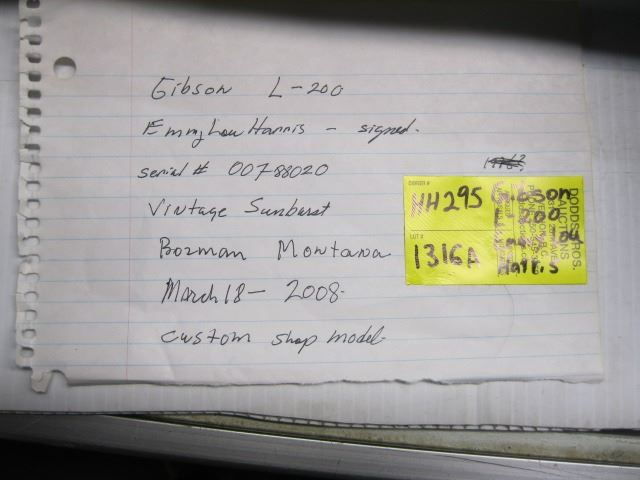 Gibson L-200
EmmyLou Harris - signed.
serial # 00788020
Vintage Sunburst
Bozman Montana
March 18 - 2008.
custom shop model.
HH295
LOT #
1316A
Gibson
L 200
Harris
DODDS BROS.
AUCTIONS